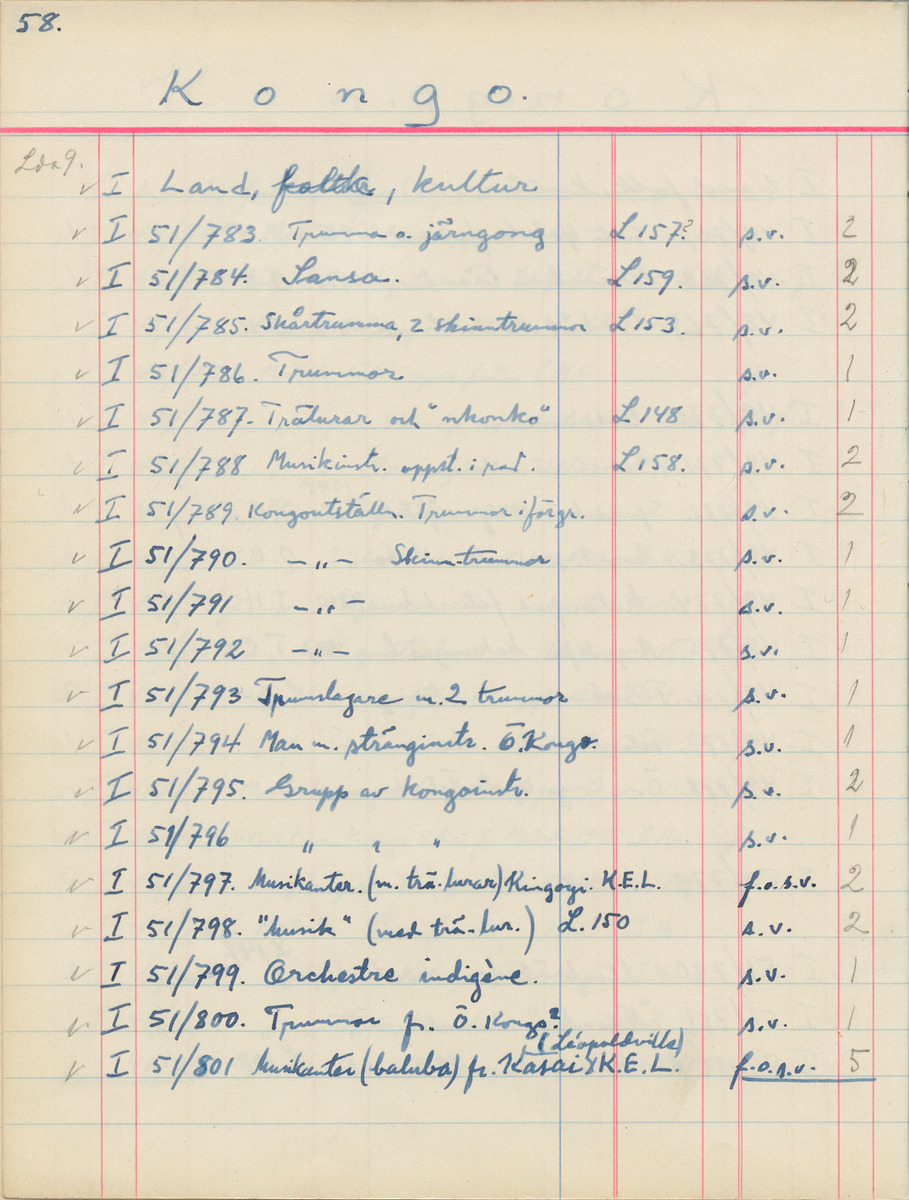 58.
Kongo.
Lda 9.
✓ I Land, folk, kultur
✓ I 51/783. Trumma o. järngong L 157? s.v. 2
✓ I 51/784. Sansa. L 159. s.v. 2
✓ I 51/785. Skårtrumma, 2 skinntrummor L 153. s.v. 2
✓ I 51/786. Trummor s.v. 1
✓ I 51/787. Trälurar och "nkonko" L 148 s.v. 1
✓ I 51/788 Musikinstr. uppst. i rad. L 158. s.v. 2
✓ I 51/789. Kongoutställn. Trummor i förgr. s.v. 2
✓ I 51/790. -„- Skinn-trummor s.v. 1
✓ I 51/791 -„- s.v. 1
✓ I 51/792 -„- s.v. 1
✓ I 51/793 Trumslagare m. 2 trummor s.v. 1
✓ I 51/794 Man m. stränginstr. Ö. Kongo. s.v. 1
✓ I 51/795. Grupp av kongoinstr. s.v. 2
✓ I 51/796 „ „ „ s.v. 1
✓ I 51/797. Musikanter. (m. trä-lurar) Kingoyi. K.E.L. f.o.s.v. 2
✓ I 51/798. "Musik" (med trä-lur.) L. 150 s.v. 2
✓ I 51/799. Orchestre indigène. s.v. 1
✓ I 51/800. Trummor fr. Ö. Kongo? s.v. 1
(Léopoldville)
✓ I 51/801 Musikanter (baluba) fr. Kasai K.E.L. f.o.s.v. 5